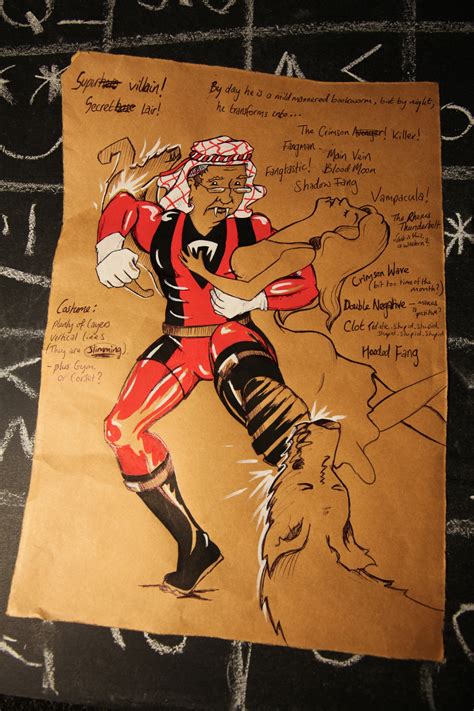 Superhero villain!
Secret base Lair!
By day he is a mild mannered bookworm, but by night,
he transforms into...
The Crimson Avenger! Killer!
Fangman
Main Vein
Fangtastic!
Blood Moon
Shadow Fang
Vampacula!
The Rhesus
Thunderbolt
Crimson Wave
(bit too time of the
month?)
Double Negative - makes a
positive?
Clot
Stupid. Stupid. Stupid
Hooded Fang
Costume:
plenty of layers
vertical lines
(They are slimming).
- plus Gym
or Corset?